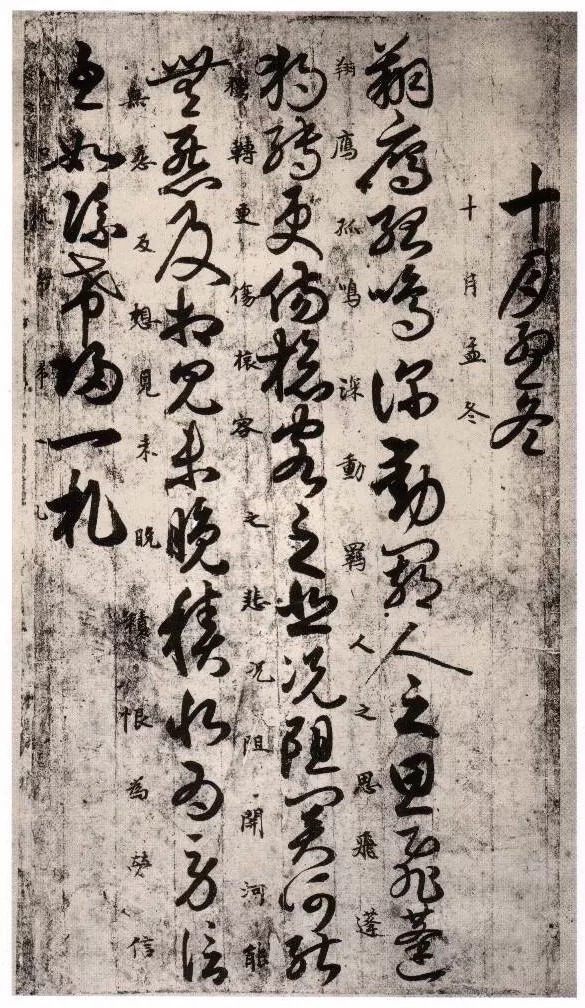 十月孟冬
十月孟冬
翔鷹孤鳴深動羇人之思飛蓬
翔鷹孤鳴深動羇人之思飛蓬
獨轉更傷客之悲況阻關河能
獨轉更傷客之悲况阻開河能
無及相見未晚積恨為勞信
無反想見未晚積恨為勞信
至如希一札